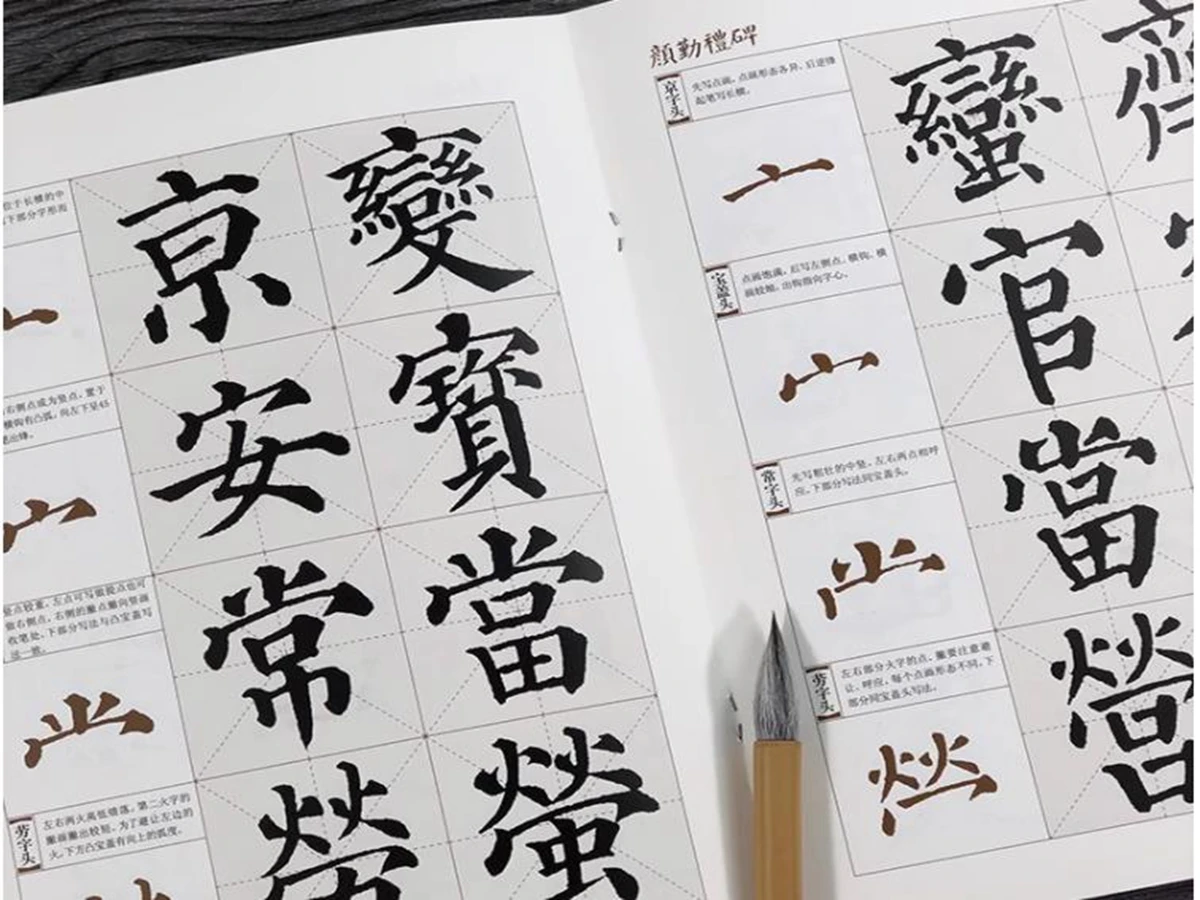 位于长横的中
下部分字形而
右侧点或为竖点，置于
横钩有凸弧，向左下呈45
笔出锋。
竖点较重，左点可写做提点也可
做右侧点，右侧的撇点撇向竖画
收笔处，下部分写法与凸宝盖写
法一致。
劳字头
左右两火高低错落，第二火字的
撇画撇出较短，为了避让左边的
火，下方凸宝盖有向上的弧度。
京變
安寶
常當
螢
顏勤禮碑
京字头
先写点画，点画形态各异，后逆锋
起笔写长横。
亠
蠻
宝盖头
点画饱满，后写左侧点，横钩，横
画较细，出钩指向字心。
宀
官
常字头
先写粗壮的中竖，左右两点相呼
应，下部分写法同宝盖头。
當
劳字头
左右部分火字的点、撇要注意避
让、呼应，每个点画形态不同，下
部分同宝盖头写法。
營